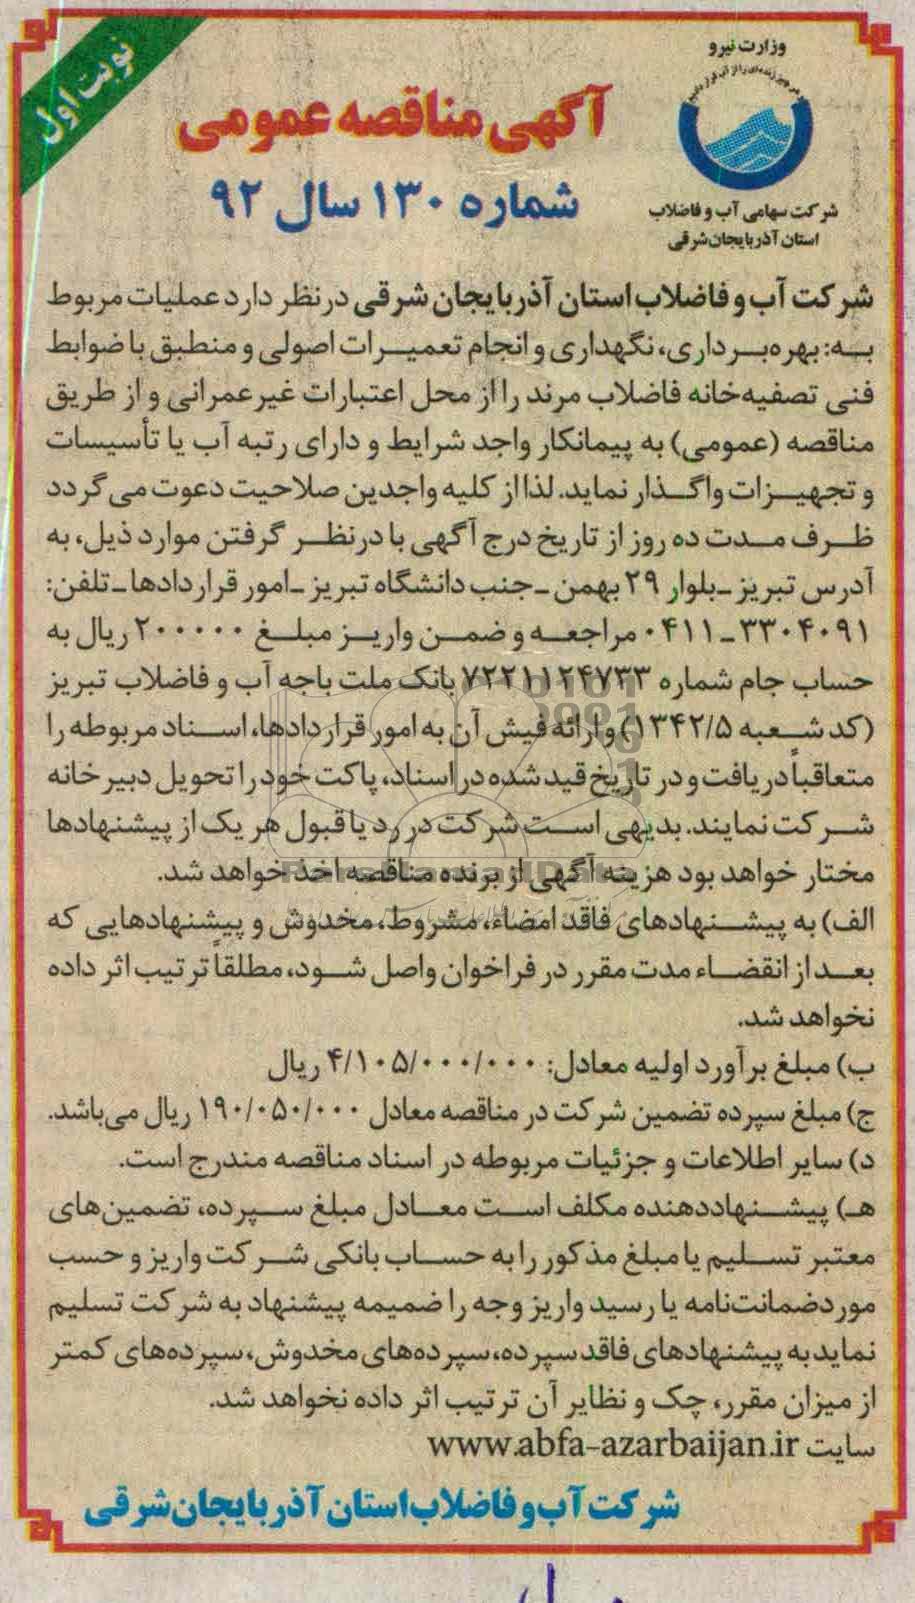 نوبت اول
وزارت نیرو
شرکت سهامی آب و فاضلاب
استان آذربایجان‌شرقی
آگهی مناقصه عمومی
شماره ۱۳۰ سال ۹۲
شرکت آب و فاضلاب استان آذربایجان شرقی در نظر دارد عملیات مربوط
به: بهره‌برداری، نگهداری و انجام تعمیرات اصولی و منطبق با ضوابط
فنی تصفیه‌خانه فاضلاب مرند را از محل اعتبارات غیرعمرانی و از طریق
مناقصه (عمومی) به پیمانکار واجد شرایط و دارای رتبه آب یا تأسیسات
و تجهیزات واگذار نماید. لذا از کلیه واجدین صلاحیت دعوت می گردد
ظرف مدت ده روز از تاریخ درج آگهی با درنظر گرفتن موارد ذیل، به
آدرس تبریز ـ بلوار ۲۹ بهمن ـ جنب دانشگاه تبریز ـ امور قراردادها ـ تلفن:
۰۴۱۱-۳۳۰۴۰۹۱ مراجعه و ضمن واریز مبلغ ۲۰۰۰۰۰ ریال به
حساب جام شماره ۷۲۲۱۱۲۴۷۳۳ بانک ملت باجه آب و فاضلاب تبریز
(کد شعبه ۱۳۴۲/۵) و ارائه فیش آن به امور قراردادها، اسناد مربوطه را
متعاقباً دریافت و در تاریخ قید شده در اسناد، پاکت خود را تحویل دبیرخانه
شرکت نمایند. بدیهی است شرکت در رد یا قبول هر یک از پیشنهادها
مختار خواهد بود هزینه آگهی از برنده مناقصه اخذ خواهد شد.
الف) به پیشنهادهای فاقد امضاء، مشروط، مخدوش و پیشنهادهایی که
بعد از انقضاء مدت مقرر در فراخوان واصل شود، مطلقاً ترتیب اثر داده
نخواهد شد.
ب) مبلغ برآورد اولیه معادل: ۴/۱۰۵/۰۰۰/۰۰۰ ریال
ج) مبلغ سپرده تضمین شرکت در مناقصه معادل ۱۹۰/۰۵۰/۰۰۰ ریال می‌باشد.
د) سایر اطلاعات و جزئیات مربوطه در اسناد مناقصه مندرج است.
هـ) پیشنهاددهنده مکلف است معادل مبلغ سپرده، تضمین‌های
معتبر تسلیم یا مبلغ مذکور را به حساب بانکی شرکت واریز و حسب
مورد ضمانت‌نامه یا رسید واریز وجه را ضمیمه پیشنهاد به شرکت تسلیم
نماید به پیشنهادهای فاقد سپرده، سپرده‌های مخدوش، سپرده‌های کمتر
از میزان مقرر، چک و نظایر آن ترتیب اثر داده نخواهد شد.
سایت www.abfa-azarbaijan.ir
شرکت آب و فاضلاب استان آذربایجان شرقی